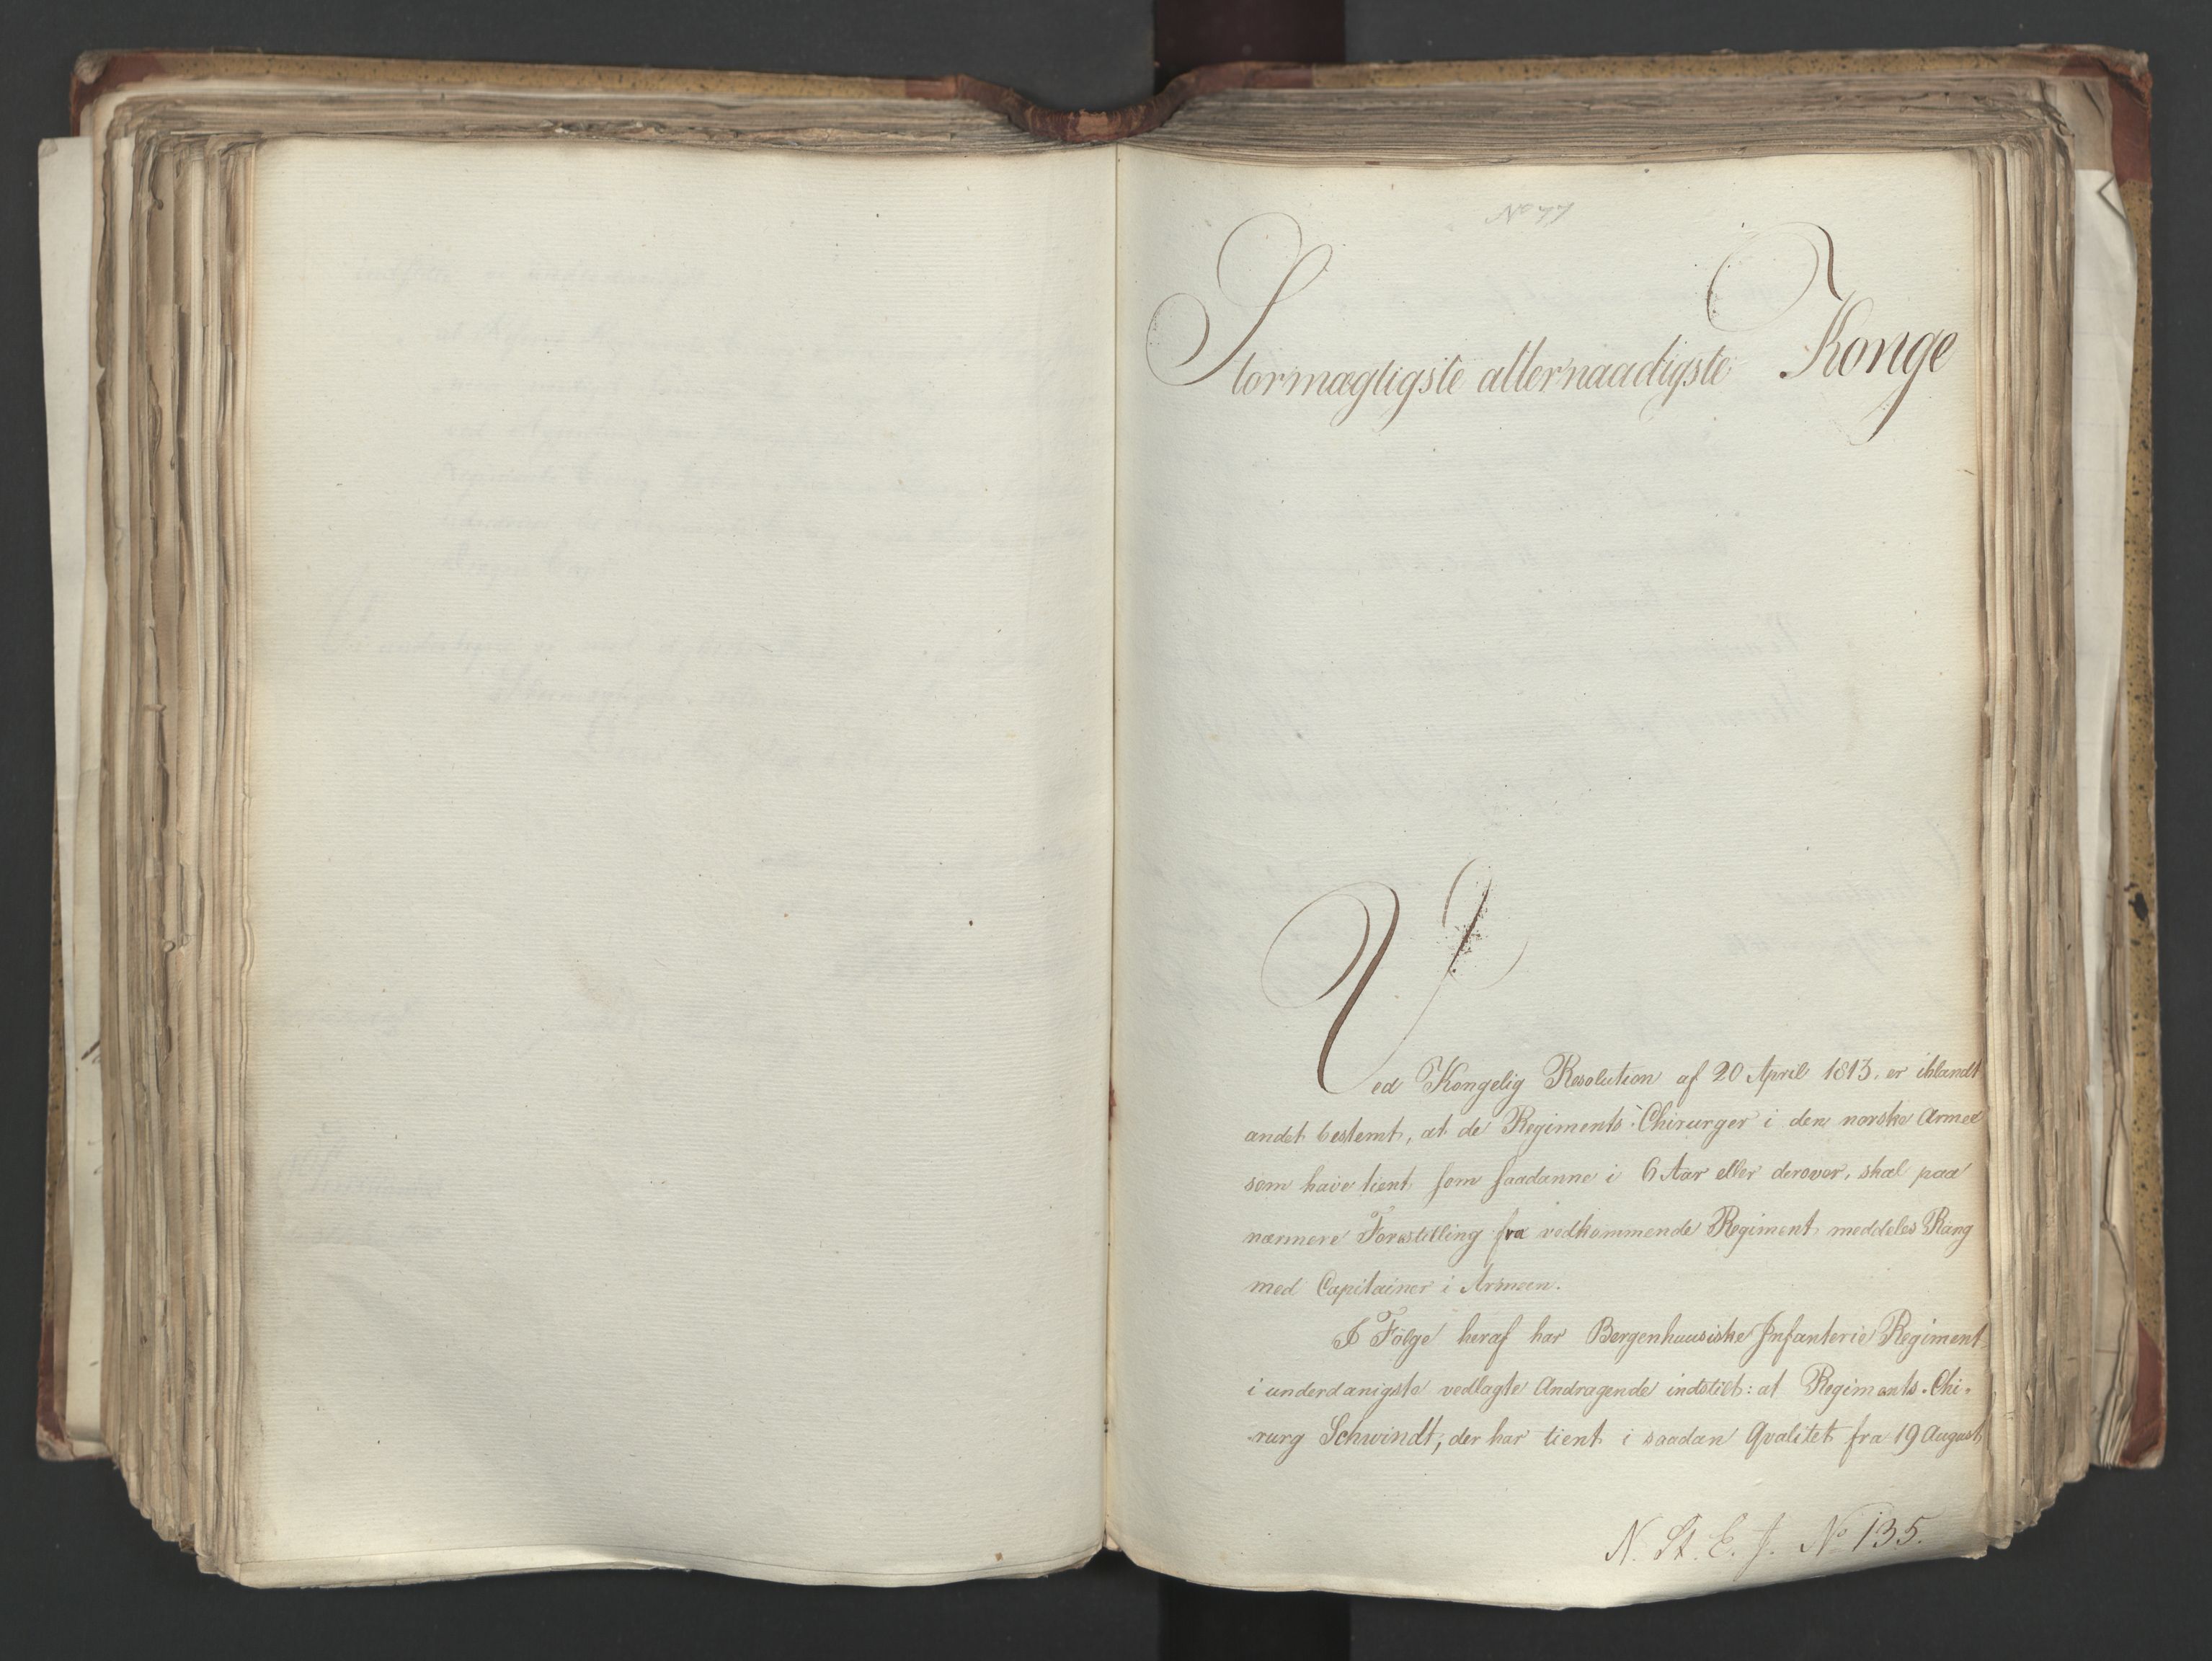 No 77
Stormægtigste allernaadigste Konge
Ved Kongelig Resolution af 20 April 1813. er iblandt
andet bestemt, at de Regiments-Chirurger i den norske Armee
som have tient som saadanne i 6 Aar eller derover, skal paa
nærmere Forestilling fra vedkommende Regiment meddeles Rang
med Capitainer i Armeen.
I Følge heraf har Bergenhuusiske Infanterie Regiment
i underdanigste vedlagte Andragende indstilt: at Regiments-Chi-
rurg Schwindt, der har tient i saadan Qvalitet fra 19 August
N. St. E. J. No 135.